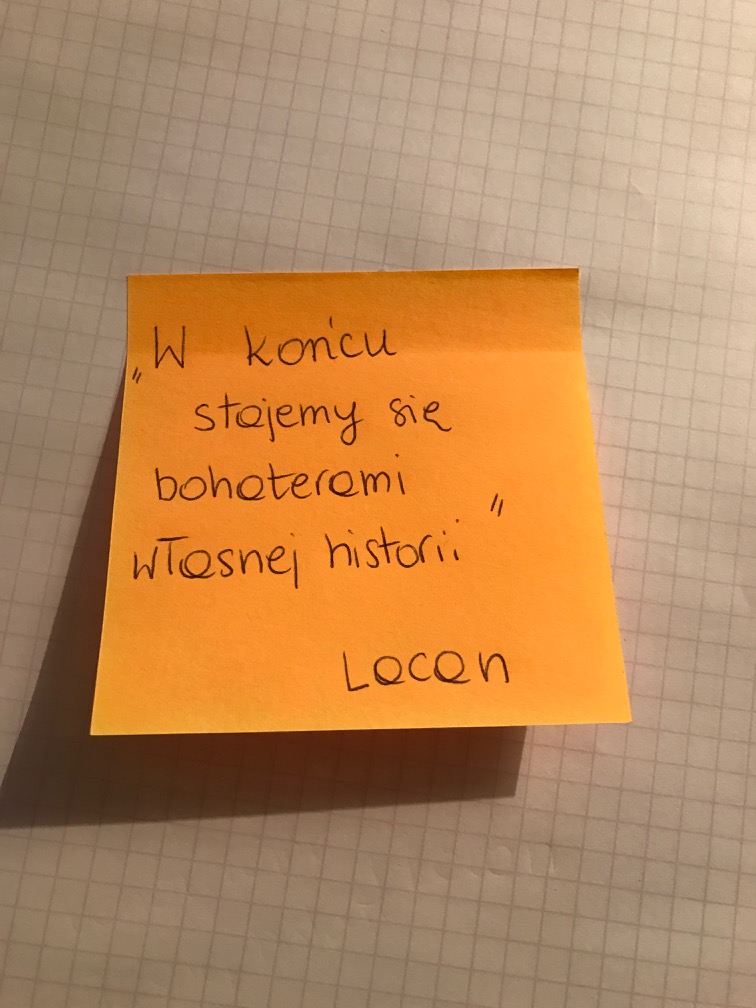 „W końcu
stajemy się
bohaterami
własnej historii"
Lacan